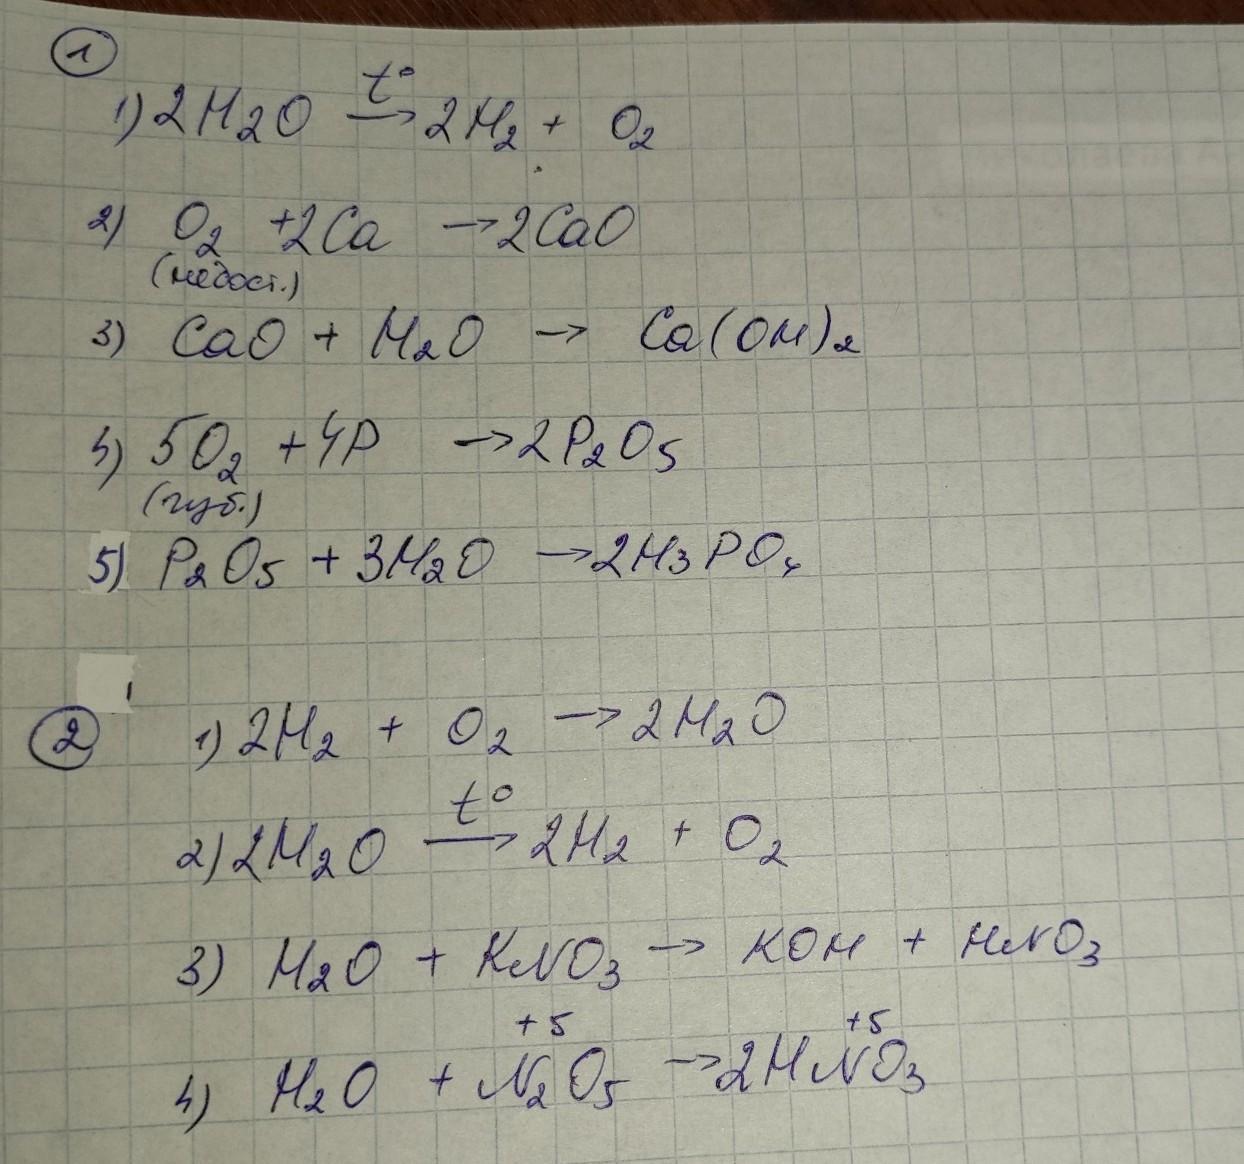 1
1) 2H2O t° → 2H2 + O2
2) O2 + 2Ca → 2CaO
(недост.)
3) CaO + H2O → Ca(OH)2
4) 5O2 + 4P → 2P2O5
5) P2O5 + 3H2O → 2H3PO4
2
1) 2H2 + O2 → 2H2O
2) 2H2O t° → 2H2 + O2
3) H2O + KNO3 → KOH + HNO3
+5 +5
4) H2O + N2O5 → 2HNO3